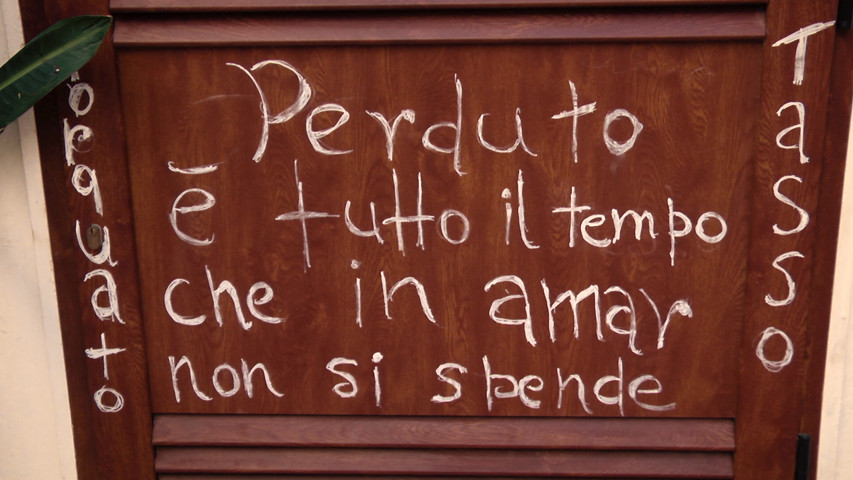 Torquato
Perduto
ē tutto il tempo
che in amar
non si spende
Tasso